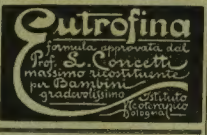 Eutrofina
formula approvata dal
Prof. L. Concetti
massimo ricostituente
per Bambini
gradevolissimo
Istituto
Neoterapico
Bologna